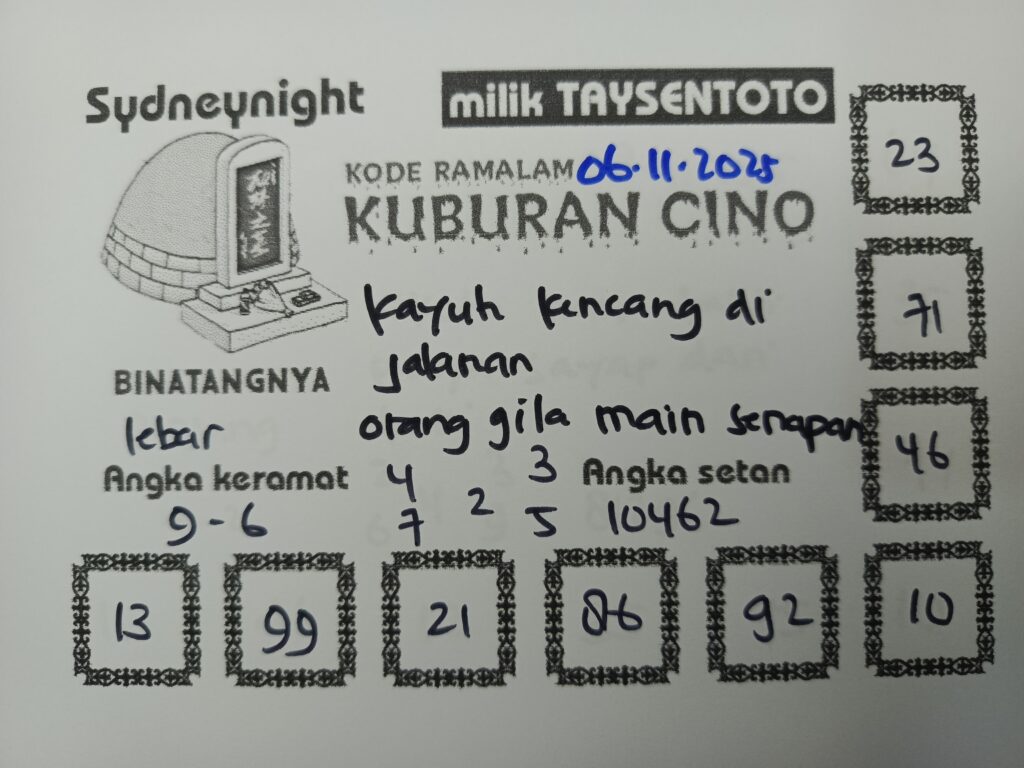 Sydneynight
milik TAYSENTOTO
KODE RAMALAM 06.11.2025
KUBURAN CINO
kayuh kencang di
jalanan
orang gila main senapan
BINATANGNYA
lebar
Angka keramat
9-6
4 3
2
7 5
Angka setan
10462
23
71
46
13 99 21 86 92 10